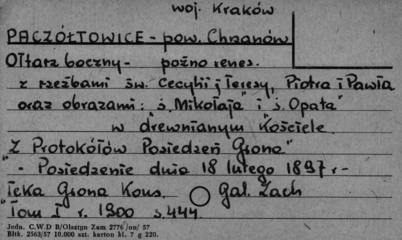 woj. Kraków
PACZÓŁTOWICE - pow. Chrzanów
Ołtarz boczny - późno renes.
z rzeźbami św. Cecylii j Teresy, Piotra i Pawła
oraz obrazami: "ś. Mikołaja" i "ś. Opata"
w drewnianym Kościele
"Z Protokółów Posiedzeń Grona"
"- Posiedzenie dnia 18 lutego 1897 r -
Teka Grona Kons. Gal. Zach
"Tom I r. 1900 s. 444.
Jedn. C.W.D B/Olsztyn Zam 2776/on/ 57
Bltk. 2563/57 10.000 szt. karton kl. 7 g 220.